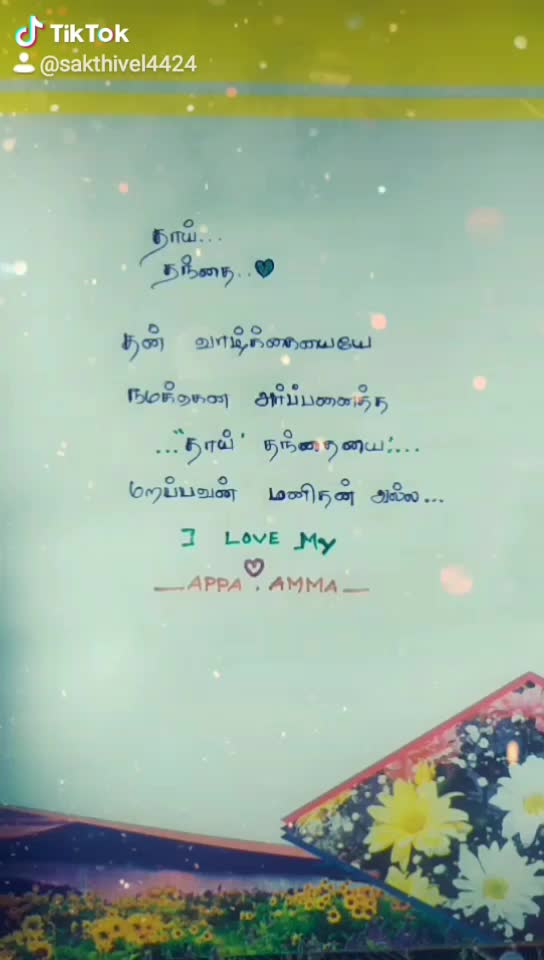 TikTok
@sakthivel4424
தாய்...
தந்தை..
தன் வாழ்க்கையையே
நமக்கென அர்ப்பனைத்த
..."தாய்' தந்தையை'....
மறப்பவன் மனிதன் அல்ல...
I LOVE My
APPA . AMMA